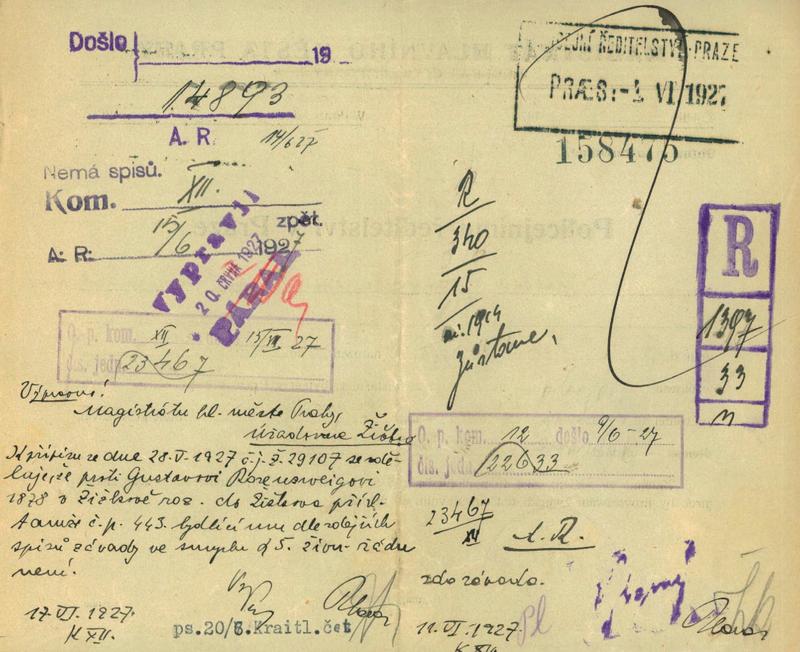 Došlo 19
14893
A. R. 14/6 27
Nemá spisů.
Kom. XII. zpět.
A. R. 15/6 1927
Vypravil
20. ČRVNA 1927
O. p. kom. XII 15/VI 27
čís. jedn. 23467
Magistrátu hl. města Prahy,
Úřadovna Žižkov
K přípisu ze dne 28.V.1927 č.j. X. 29107 se sdě-
luje, že proti Gustavovi Rosenzweigovi
1878 v Žižkově roz. do Žižkova přísl.
tamže č.p. 443. bydlícímu dle zdejších
spisů závady ve smyslu § 5. živn. řádu
není.
17.VI.1927.
K XII.
ps. 20/6. Kraitl. čet
ŘEDITELSTVÍ PRAZE
-1 VI 1927
158475
R
340
15
1914
zůstane.
R
1397
33
n
O. p. kom. 12 došlo 9/6-27
čís. jedn. 22633
23467
XII
A. R.
zda závada.
11.VI.1927.
Pl